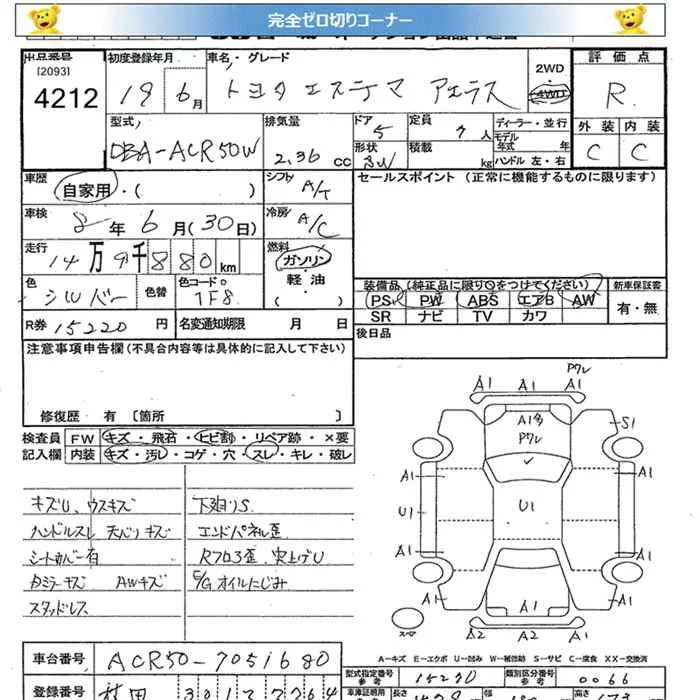 完全ゼロ切りコーナー
出品番号 初度登録年月 車名・グレード 評価点
[2093]
4212
19 6月 トヨタ エスティマ アエラス
2WD・4WD
R
型式 排気量 ドア 定員 ディーラー・並行 外装 内装
DBA-ACR50W 2.36cc 5 7人 モデル年式 年
形状 積載
5W kg ハンドル 左・右
C C
車歴 シフト セールスポイント (正常に機能するものに限ります)
自家用・( ) A/T
車検 冷房
8年6月(30日) A/C
走行 燃料
14万9千880km ガソリン・軽油・( )
色 色替 色コード
シルバー 1F8
装備品 (純正品に限り○をつけてください) 新車保証書
PS PW ABS エアB AW 有・無
SR ナビ TV カワ
R券 15220円 名変通知期限 月 日
後日品
注意事項申告欄(不具合内容等は具体的に記入して下さい)
修復歴 有 [箇所 ]
検査員 FW キズ・飛石・ヒビ割・リペア跡・×要
記入欄 内装 キズ・汚し・コゲ・穴・スレ・キレ・破レ
キズU、ウスキズ
ハンドルスレ 天バリキズ
シートカバー有
Rミラーキズ AWキズ
スタッドレス
下廻りS
エンドパネル歪
Rフロア歪、突上げU
E/Gオイルにじみ
Pクレ
A1 A1 A1
A1多
Pクレ
S1
A1 A1
U1 U1 U1
A1 A1
A1 A1 A1
スペア
A2 A2 A1
A-キズ E-エクボ U-凹み W-補修跡 S-サビ C-腐食 XX-交換済
車台番号 ACR50-7051680
型式指定番号 15270 類別区分番号 0066
登録番号
車庫証明用 長さ 幅 高さ